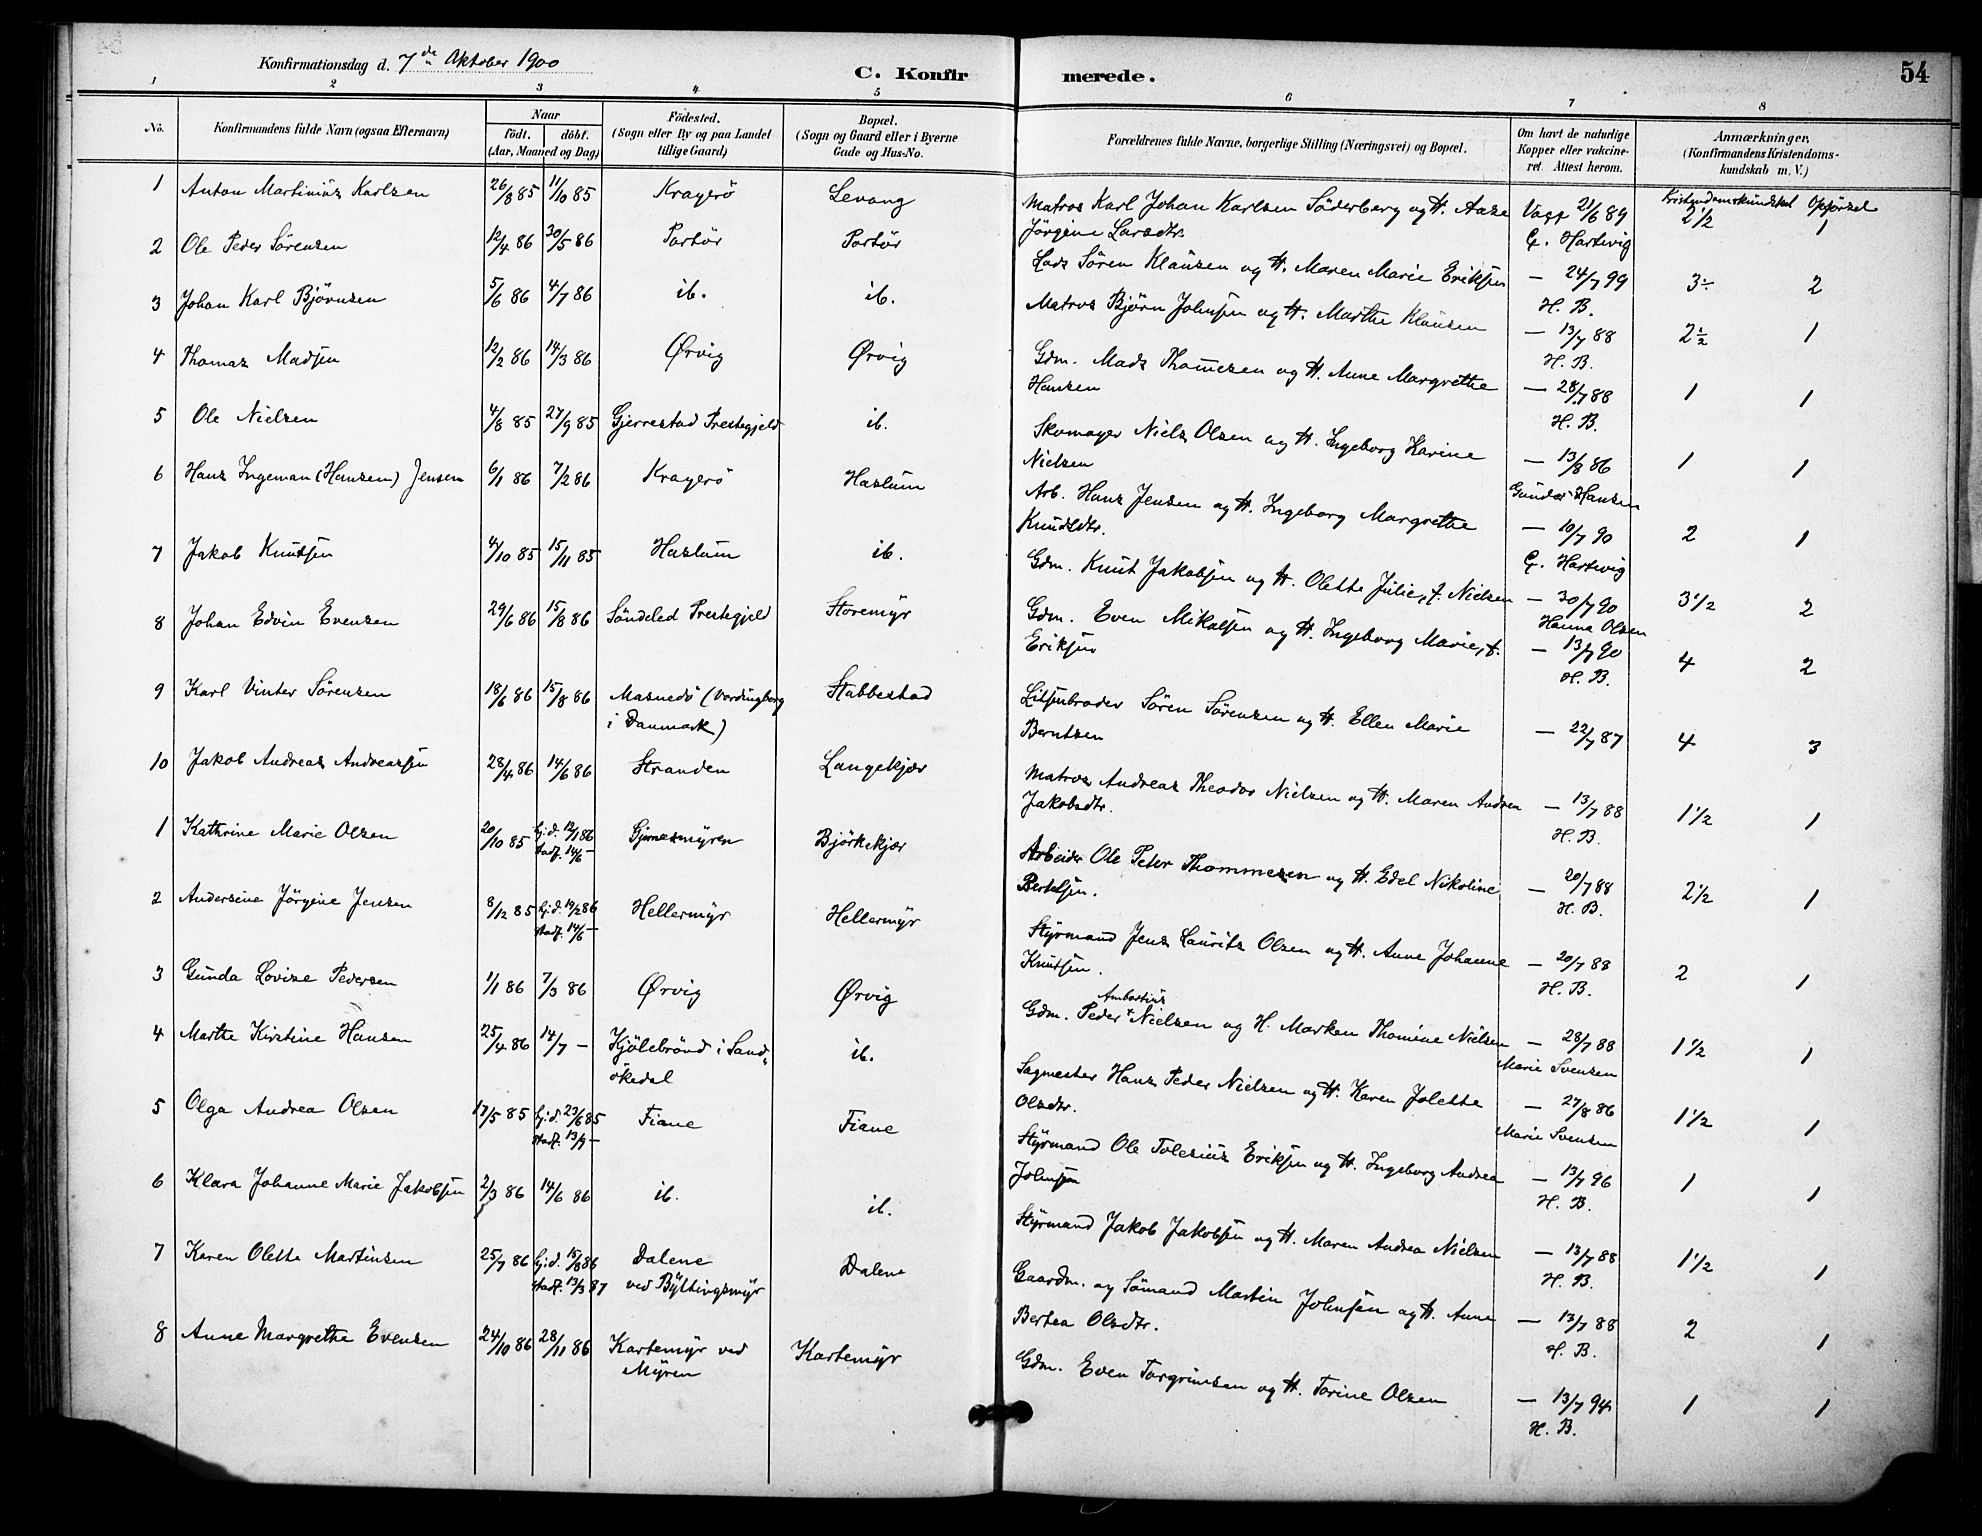 Konfirmationsdag d. 7de Oktober 1900
C. Konfirmerede.
54
1 2 3 4 5 6 7 8
No. Konfirmandens fulde Navn (ogsaa Efternavn) Naar født. døbt. (Aar, Maaned og Dag) Fødested. (Sogn eller By og paa Landet tillige Gaard) Bopæl. (Sogn og Gaard eller i Byerne Gade og Hus-No. Forældrenes fulde Navne, borgerlige Stilling (Næringsvei) og Bopæl. Om havt de naturlige Kopper eller vakcineret. Attest herom. Anmærkninger, (Konfirmandens Kristendomskundskab m. V.)
Kristendomskundskab Opførsel
1 Anton Martinius Karlsen 26/8 85 11/10 85 Kragerö Levang Matros Karl Johan Karlsen Söderberg og H. Aase Vacc 21/6 89 2 1/2 1
Jörgine Larsdtr. G. Hartvig
2 Ole Peder Sörensen 12/4 86 30/5 86 Portör Portör Lods Sören Klausen og H. Maren Marie Eriksen — 24/7 99 3÷ 2
H. B.
3 Johan Karl Bjørnsen 5/6 86 4/7 86 ib. ib. Matros Bjørn Johnsen og H. Marthe Klausen — 13/7 88 2 1/2 1
H. B.
4 Thomas Madsen 12/2 86 14/3 86 Ørvig Ørvig Gdm. Mads Thomesen og H. Anne Margrethe — 28/7 88 1 1
Hansen H. B.
5 Ole Nielsen 4/8 85 27/9 85 Gjerrestad Prestegjeld ib. Skomager Niels Olsen og H. Ingeborg Karine — 13/8 86 1 1
Nielsen Gunder Hansen
6 Hans Ingeman (Hansen) Jensen 6/1 86 7/2 86 Kragerö Haslum Arb. Hans Jensen og H. Ingeborg Margrethe — 10/7 90 2 1
Knudsdtr. G. Hartvig
7 Jakob Knutsen 4/10 85 15/11 85 Haslum ib. Gdm. Knut Jakobsen og H. Olette Julie, f. Nielsen — 30/7 90 3 1/2 2
Hanna Olsen
8 Johan Edvin Evensen 29/6 86 15/8 86 Söndeled Prestegjeld Storemyr Gdm. Even Mikalsen og H. Ingeborg Marie, f. — 13/7 90 4 2
Eriksen H. B.
9 Karl Vinter Sörensen 18/6 86 15/8 86 Masnedö (Vordingborg Stabbestad Sören Sörensen og H. Ellen Marie — 22/7 87 4 3
i Danmark) Berntsen
10 Jakob Andreas Andreassen 28/4 86 14/6 86 Stranden Langekjær Matros Andreas Theodor Nielsen og H. Maren Andrea — 13/7 88 1 1/2 1
Jakobsdtr. H. B.
1 Kathrine Marie Olsen 20/10 85 hj.d. 12/1 86 Gjernesmyren Bjørkekjær Arbeider Ole Peter Thommesen og H. Edel Nikoline — 20/7 88 2 1/2 1
stadf. 14/6 — Bertelsen. H. B.
2 Andersine Jörgine Jensen 8/12 85 hj.d. 10/2 86 Hellermyr Hellermyr Styrmand Jens Laurits Olsen og H. Anne Johanne — 20/7 88 2 1
stadf. 14/6 — Knutsen. H. B.
3 Gunda Lovise Pedersen 1/1 86 7/3 86 Ørvig Ørvig Gdm. Peder Ambortius Nielsen og H. Marken Thomine Nielsen — 28/7 88 1 1/2 1
Marie Svensen
4 Marthe Kirstine Hansen 25/4 86 14/7 — Kjölebrönd i Sand- ib. Sagmester Hans Peder Nielsen og H. Karen Jolette — 27/8 86 1 1/2 1
ökedal Olsdtr. Marie Svensen
5 Olga Andrea Olsen 17/5 85 hj.d. 23/6 85 Fiane Fiane Styrmand Ole Tolesius Eriksen og H. Ingeborg Andrea — 13/7 96 1 1
stadf. 13/9 — Johnsen H. B.
6 Klara Johanne Marie Jakobsen 2/3 86 14/6 86 ib. ib. Styrmand Jakob Jakobsen og H. Maren Andrea Nielsen — 13/7 88 1 1/2 1
H. B.
7 Karen Olette Martinsen 25/7 86 hj.d. 15/8 86 Dalene Dalene Gaardm. og Sömand Martin Johnsen og H. Anne — 13/7 88 2 1
stadf. 13/3 87 ved Byttingsmyr Bertea Olsdtr. H. B.
8 Anne Margrethe Evensen 24/10 86 28/11 86 Kartemyr ved Kartemyr Gdm. Even Torgrimsen og H. Torine Olsen — 13/7 94 1 1
Myren H. B.